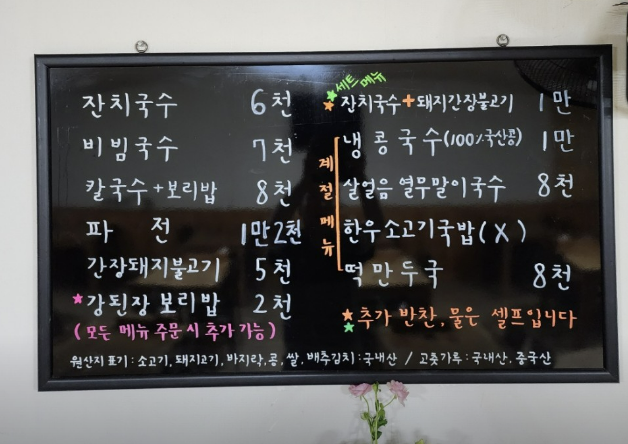 잔치국수 6천
비빔국수 7천
칼국수+보리밥 8천
파 전 1만2천
간장돼지불고기 5천
★강된장 보리밥 2천
(모든 메뉴 주문 시 추가 가능)
★세트메뉴
★잔치국수+돼지간장불고기 1만
계절메뉴
냉콩국수(100%국산콩) 1만
살얼음 열무말이국수 8천
한우소고기국밥(X)
떡만두국 8천
★★추가 반찬, 물은 셀프입니다
원산지 표기: 소고기, 돼지고기, 바지락, 콩, 쌀, 배추김치: 국내산 / 고춧가루: 국내산, 중국산